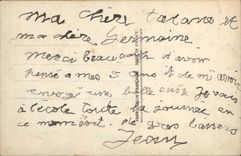 ma chère tatane et
ma chère Germaine
Merci beaucoup d'avoir
pensé a mes 5 ans et de m'avoir
envoyé une belle carte Je vais
a l'école toute la journée en
ce moment. de gros baisers
Jean